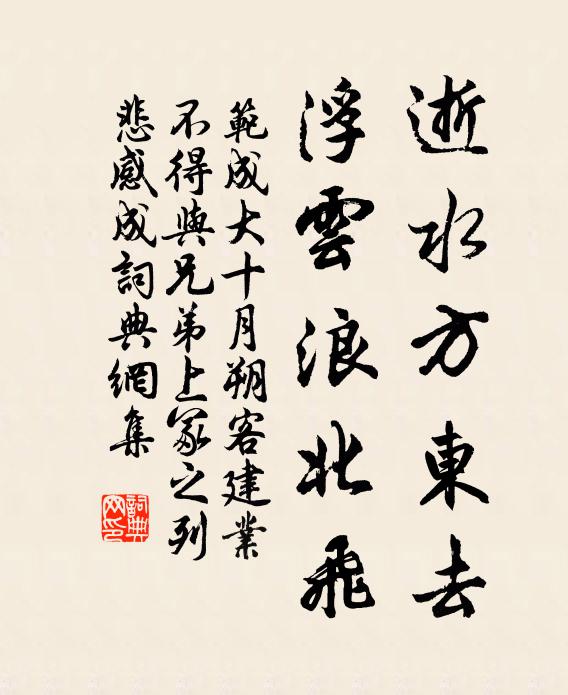 逝水方東去
浮雲浪北飛
範成大十月朔客建業
不得與兄弟上冢之列
悲感成詞典網集
詞典
网印